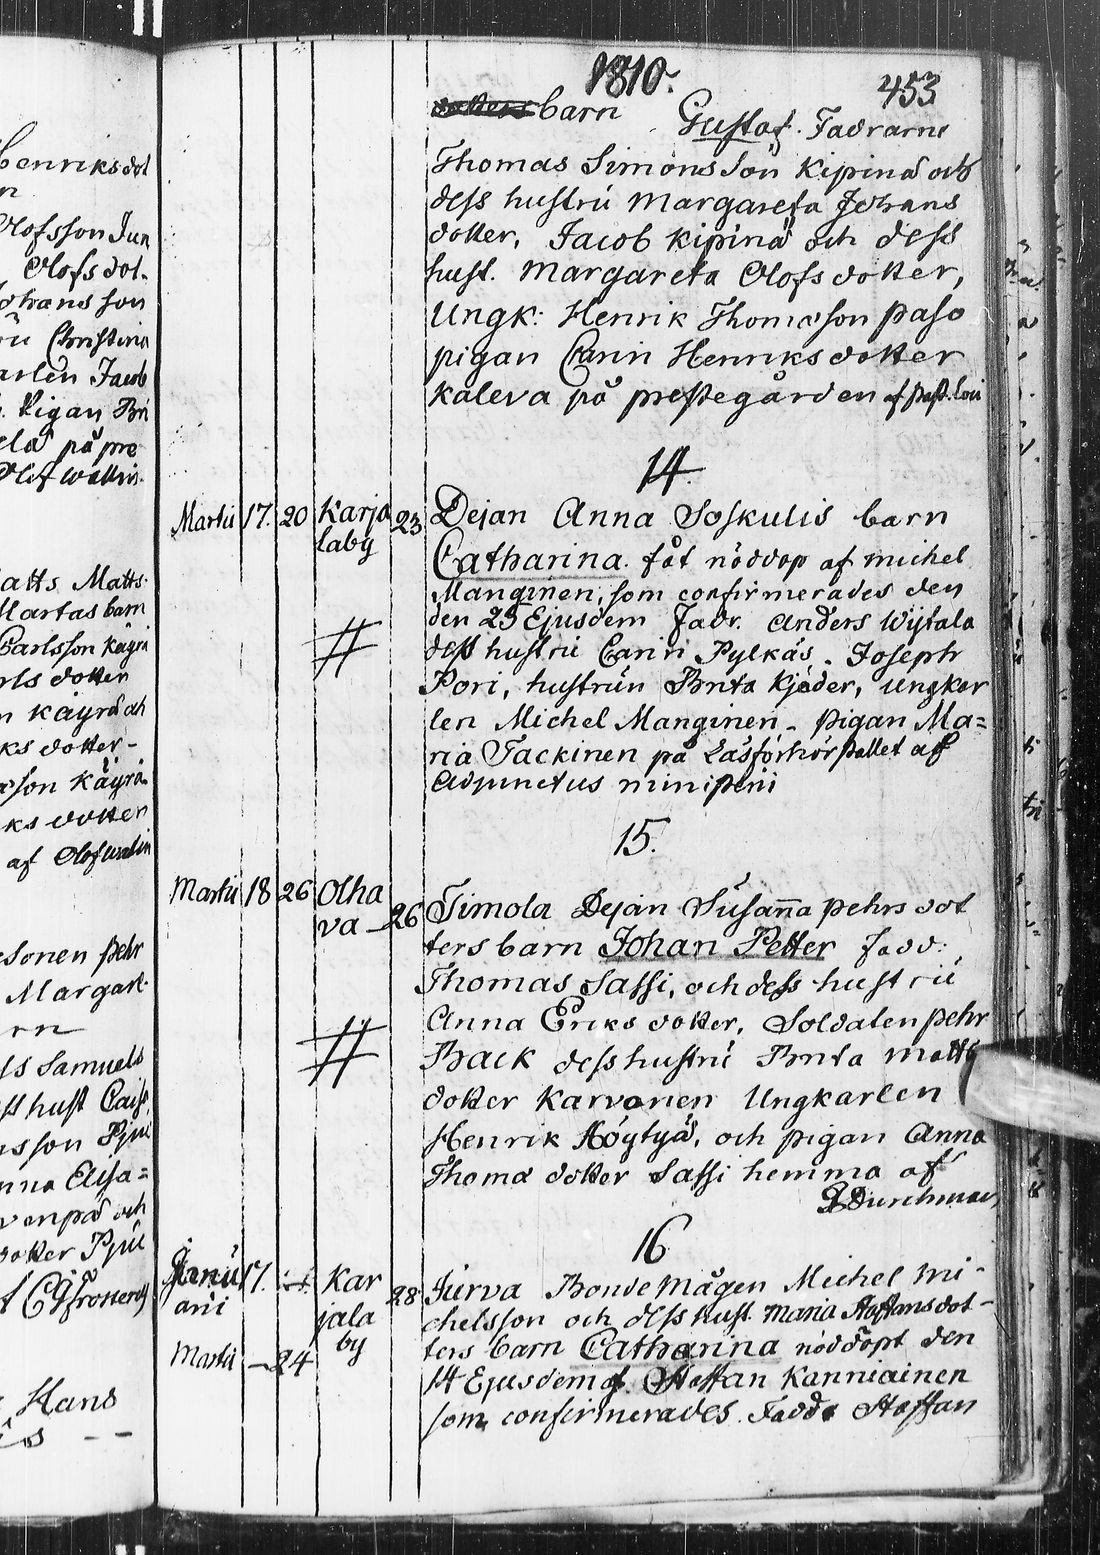 1810.
453
barn Gustaf. Fadrarne
Thomas Simons Son Kipinä och
dess hustru Margareta Johans
dotter, Jacob Kipinä och dess
hust. Margareta Olofs dotter,
Ungk: Henrik Thomasson Paso
pigan Carin Henriksdotter
Kaleva på prestegården af
14.
Martii 17. 20 Karja 23 Dejan Anna Soskulis barn
laby Catharina. fåt nöddop af Michel
Manginen, som confirmerades den
den 23 Ejusdem Fadr. Anders Wijtala
dess hustru Carin Pylkäs. Joseph
Pori, hustrun Brita Kjäder, ungkar
len Michel Manginen - pigan Ma=
ria Tackinen på Läsförhörstället af
Adjunctus
15.
Martii 18 26 Olha 26 Timola Dejan Susanna Pehrs dot
va - ters barn Johan Petter Fadd:
Thomas Sassi, och dess hustru
Anna Eriks dotter, Soldaten Pehr
Back dess hustru Brita Matts
dotter Karvonen Ungkarlen
Henrik Höytyä, och pigan Anna
Thoma dotter Sassi hemma af
Durchman
16
Janu 17. Kar 28 Jurva Bonde Mågen Michel Mi-
arii jala chelsson och dess hust. Maria Staffansdot-
Martii - 24 by ters barn Catharina nöddöpt den
14 Ejusdem af Staffan Kanniainen
som confirmerades. Fadd. Staffan
Henriksdot
Olofsson Jun
Olofs dot.
Johans son
Christina
Jacob
Pigan Bri
på pre
Olof Wallin.
Matts Matts
Martas barn
Carlsson Käyrä
dotter
Käyrä och
ks dotter -
son Käyrä
ks dotter
af Olof Wallin
Pehr
Margar.
rn
Samuels
hust Caisa
sson
Elisa=
och
dotter
Hans